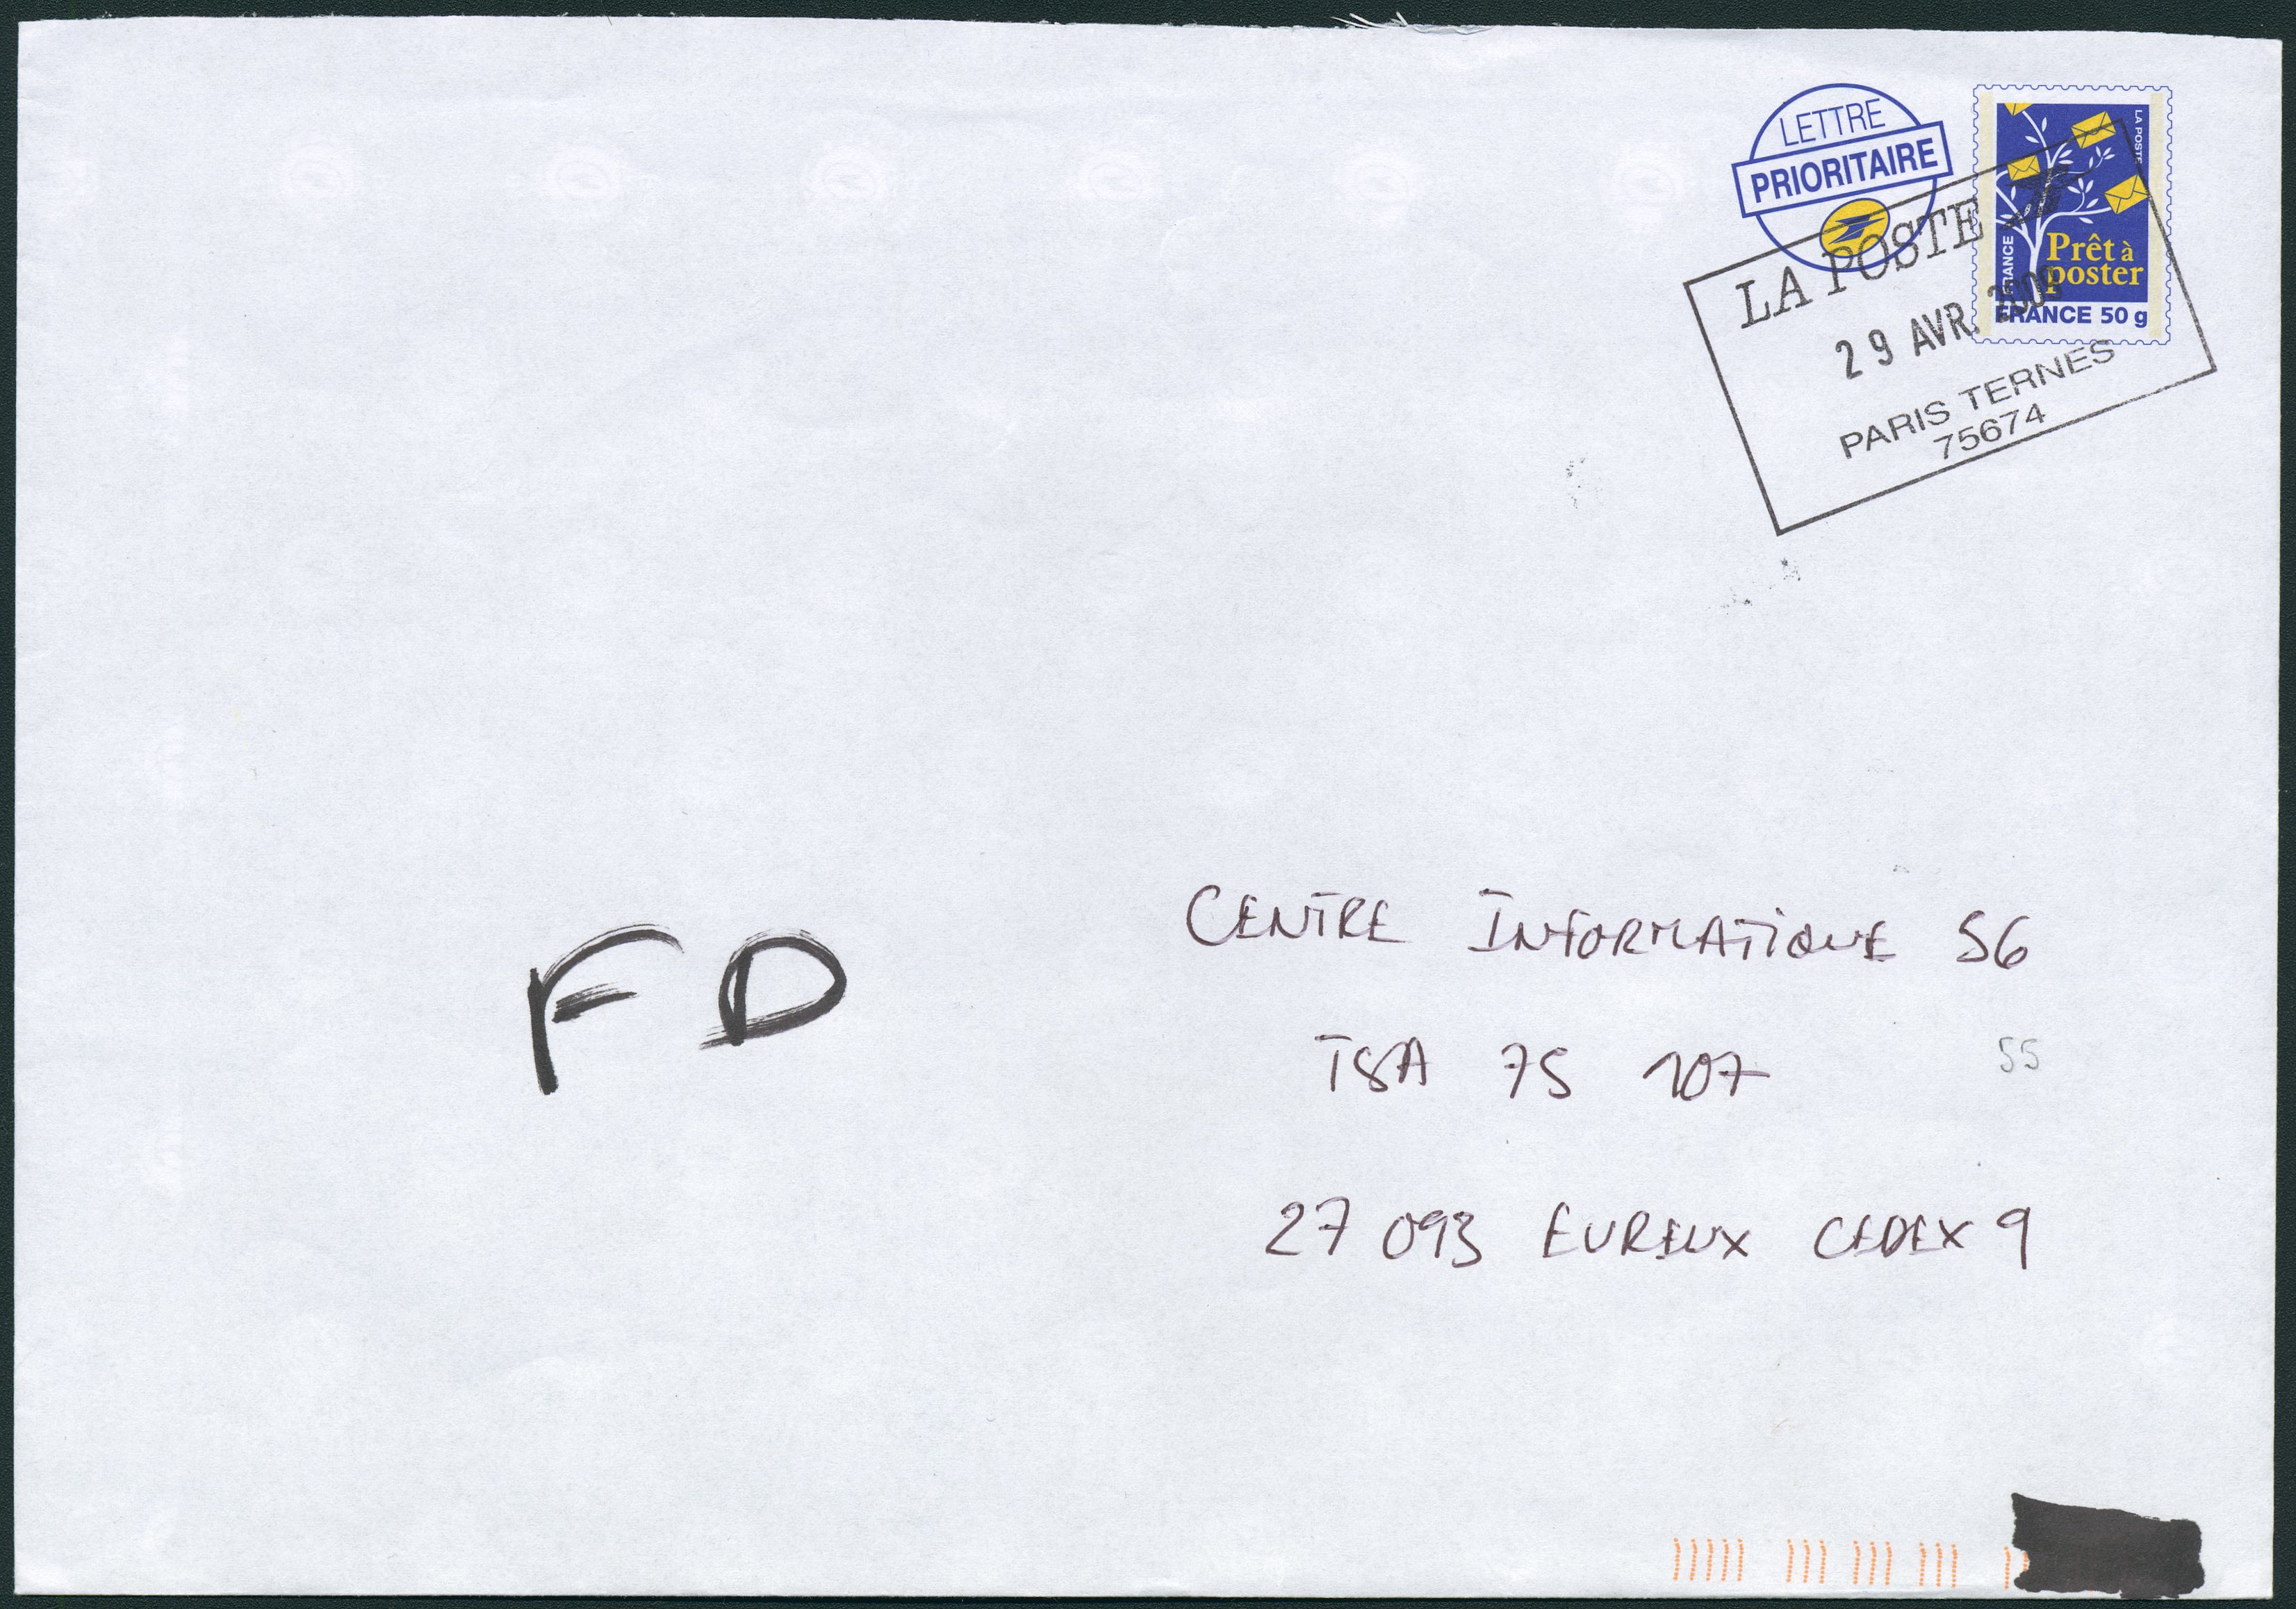 LETTRE
PRIORITAIRE
LA POSTE
FRANCE
Prêt à
poster
FRANCE 50 g
LA POSTE
29 AVR.
PARIS TERNES
75674
CENTRE INFORMATIQUE 56
FD
TSA 75 107
55
27 093 EUREUX CEDEX 9